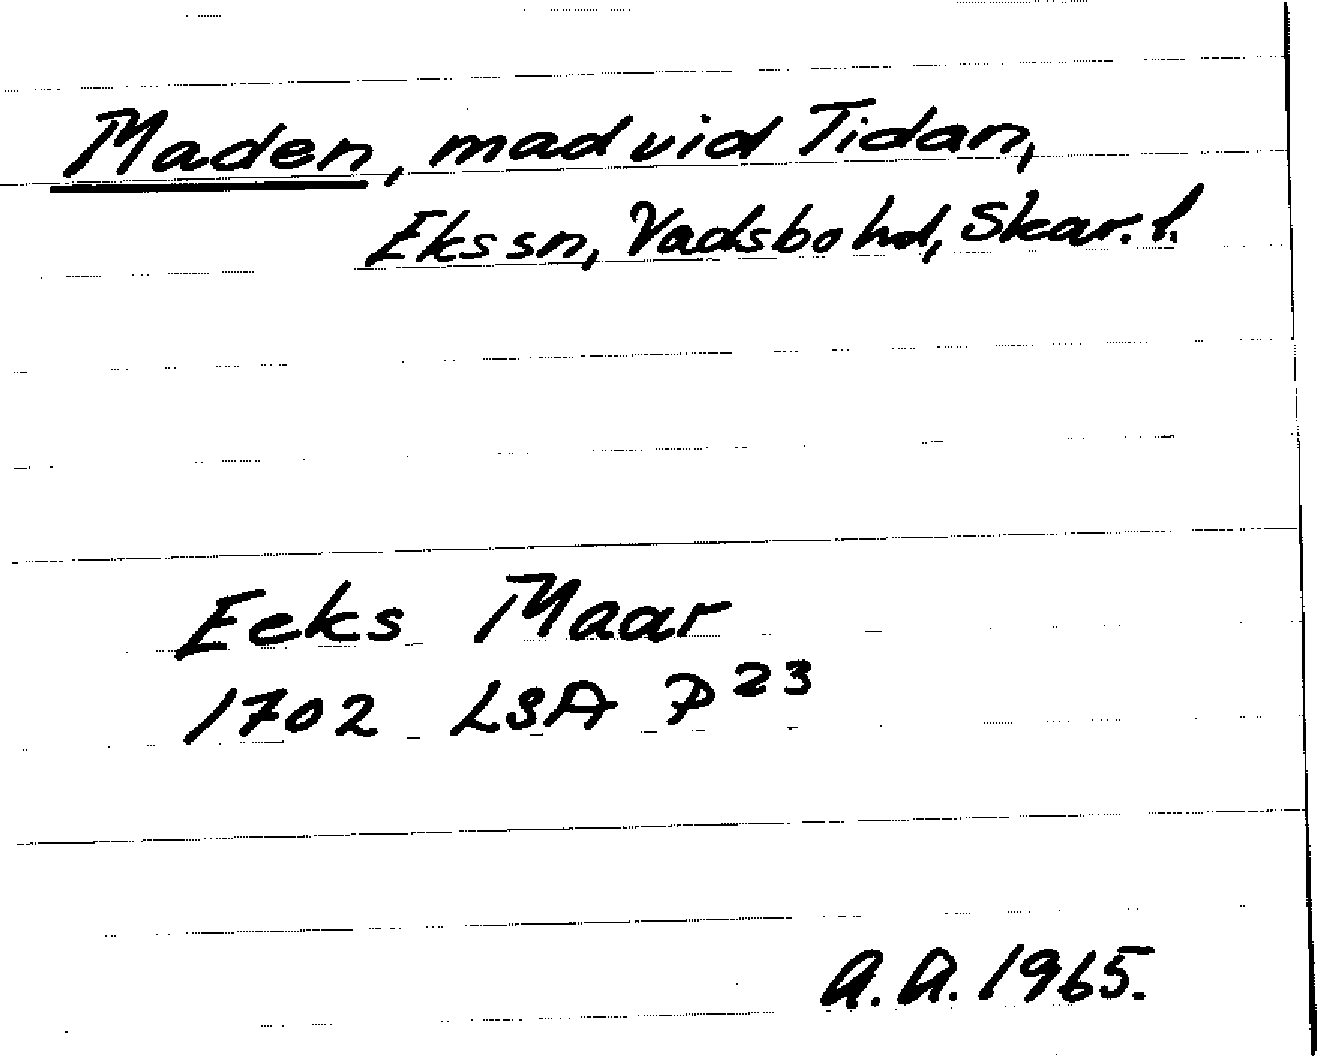 Maden, mad vid Tidan,
Eks sn, Vadsbo hd, Skar. l.
Eeks Maar
1702 LSA P 23
A. A. 1965.